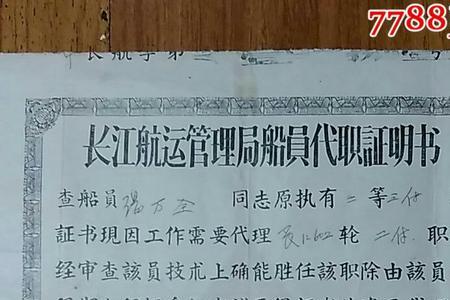 7788
长航字第
号
长江航运管理局船員代职証明书
查船員 張万全 同志原执有 二 等 三付
証书現因工作需要代理 長江602 轮 二付 职
経审查該員技朮上确能胜任該职除由該員